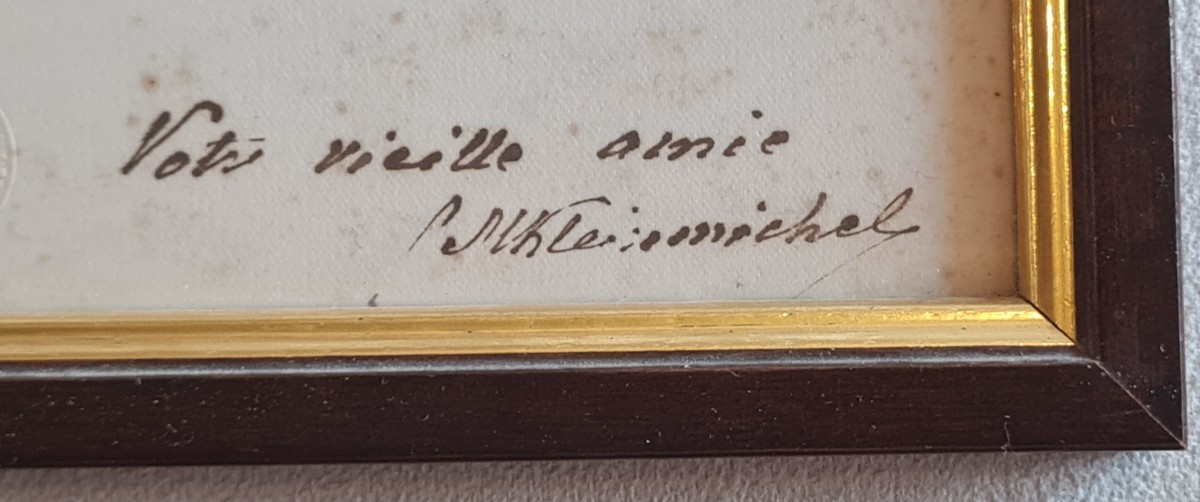 Votre vieille amie
MKleinmichel